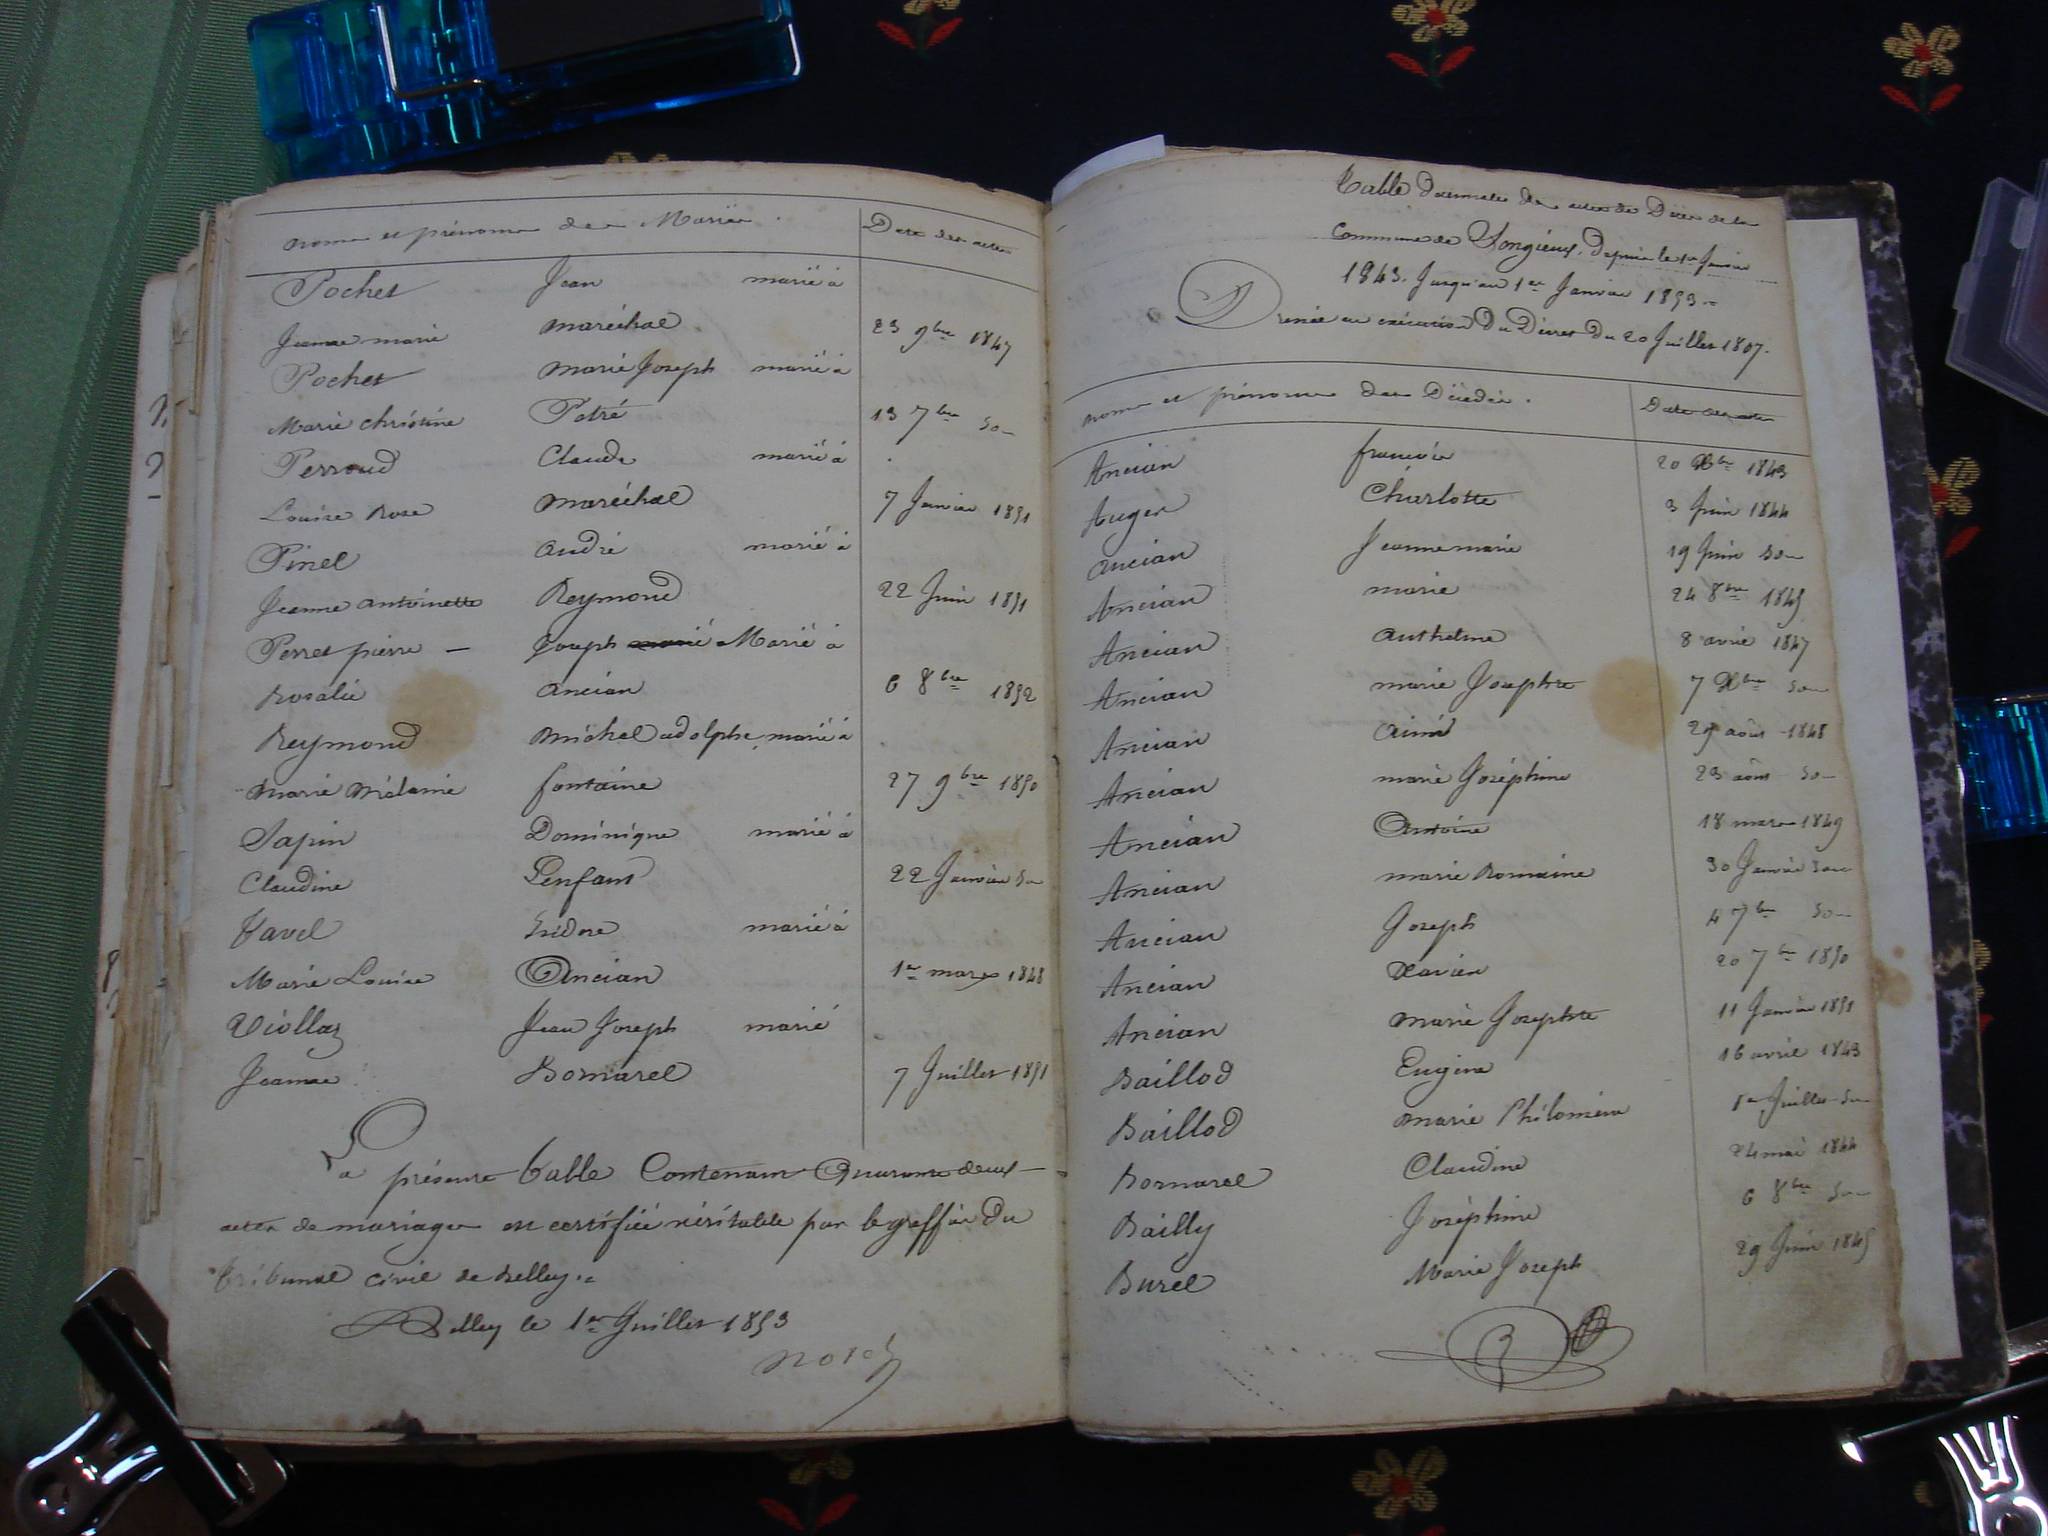 noms et prénoms des Mariés. Date des actes
Pochet Jean marié à
Jeanne marie maréchal 23 9bre 1847
Pochet marie Joseph marié à
Marie christine Pétré 13 7bre do
Perroud Claude marié à
Louise Rose maréchal 7 Janvier 1851
Pinel andré marié à
Jeanne antoinette Reymond 22 Juin 1851
Perret pierre - Joseph Marié à
Rosalie ancian 6 8bre 1852
Reymond michel adolphe, marié à
Marie Mélanie fontaine 27 9bre 1850
Sapin Dominique marié à
Claudine Lenfant 22 Janvier do
Tavel Isidore marié à
Marie Louise Ancian 1er mars 1848
Viollaz Jean Joseph marié
Jeanne Bornarel 7 Juillet 1851
La présente table Contenant Quarante deux
actes de mariages est certifiée véritable par le greffier du
tribunal civil de Belley.
Belley le 1er Juillet 1853
Table décennale des actes de Décès de la
Commune de Songieux, depuis le 1er Janvier
1843. Jusqu'au 1er Janvier 1853.
Dressée en exécution Du Décret Du 20 Juillet 1807.
noms et prénoms des Décédés. Date des actes
Ancian francois 20 Xbre 1843
Auger Charlotte 3 Juin 1844
Ancian Jeanne marie 19 Juin do
Ancian marie 24 8bre 1845
Ancian Anthelme 8 avril 1847
Ancian marie Josephte 7 Xbre do
Ancian Aimé 29 août 1848
Ancian marie Joséphine 23 août do
Ancian Antoine 18 mars 1849
Ancian marie Romaine 30 Janvier do
Ancian Joseph 4 7bre do
Ancian Xavier 20 7bre 1850
Ancian Marie Josephte 11 Janvier 1851
Baillod Eugène 16 avril 1843
Baillod marie Philomène 1er Juillet do
Bornarel Claudine 24 mai 1844
Bailly Joséphine 6 8bre do
Burel Marie Joseph 29 Juin 1845